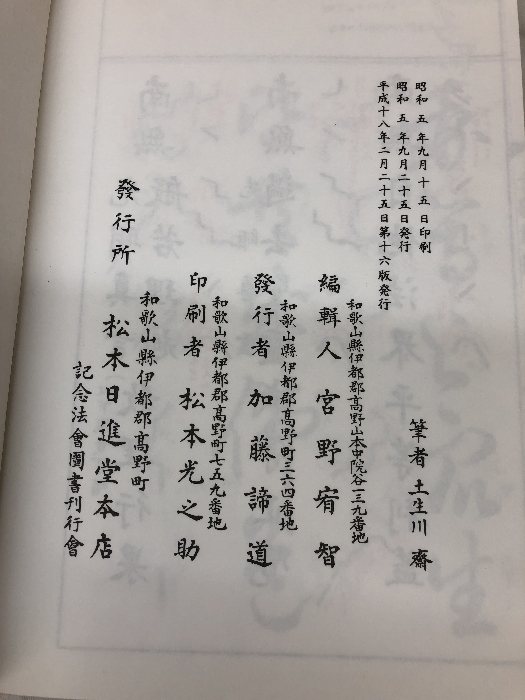 昭和五年九月十五日印刷
昭和五年九月二十五日発行
平成十八年二月二十五日第十六版発行
筆者土生川齋
和歌山縣伊都郡高野山本中院谷一三九番地
編輯人宮野宥智
和歌山縣伊都郡高野町三六四番地
發行者加藤諦道
和歌山縣伊都郡高野町七五九番地
印刷者松本光之助
發行所
和歌山縣伊都郡高野町
松本日進堂本店
記念法會圖書刊行會